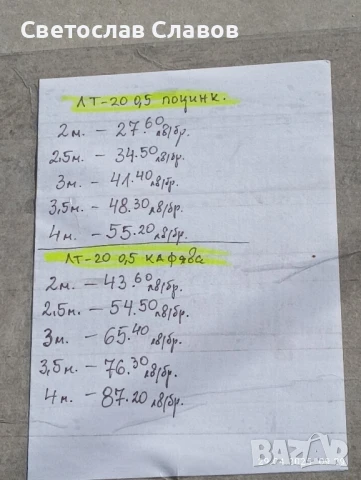 Светослав Славов
ЛТ-20 0,5 поцинк.
2м. - 27.60 лв/бр.
2,5м - 34.50 лв/бр.
3м - 41.40 лв/бр.
3,5м - 48.30 лв/бр.
4м - 55.20 лв/бр.
ЛТ-20 0,5 кафява
2м. - 43.60 лв/бр.
2,5м. - 54.50 лв/бр.
3м. - 65.40 лв/бр.
3,5м. - 76.30 лв/бр.
4м. - 87.20 лв/бр.
BAZAR